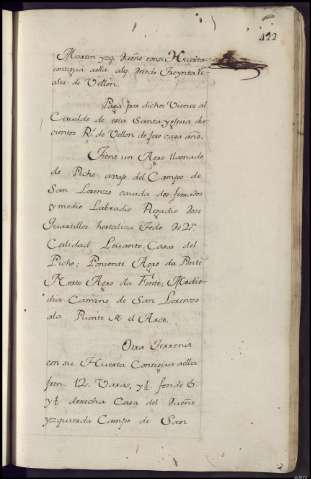 422
Martin yzq. Dueño con su Huerta
contigua a ella alq. Precio Treynta Re
ales de Vellon.
Paga por dichos Vienes al
Cavildo de esta Santa Yglesia do
cientos R.s de Vellon de foro cada año.
Tiene un Agro llamado
de Picho, arrap. del Campo de
San Lorenzo cavida dos ferrados
y medio Labradio Regadio dos
quartillos hortaliza Todo de 2.ª
Calidad Levante, Casa del
Picho; Poniente Agro da Ponte
Norte Agro da Fonte; Medio
dia Camino de San Lorenzo
a la Puente
Otra Terrena
con su Huerta Contigua a ella
fren. 12. Varas, y ½ fondo 6.
y ½ derecha Casa del Dueño
yzquierda Campo de San